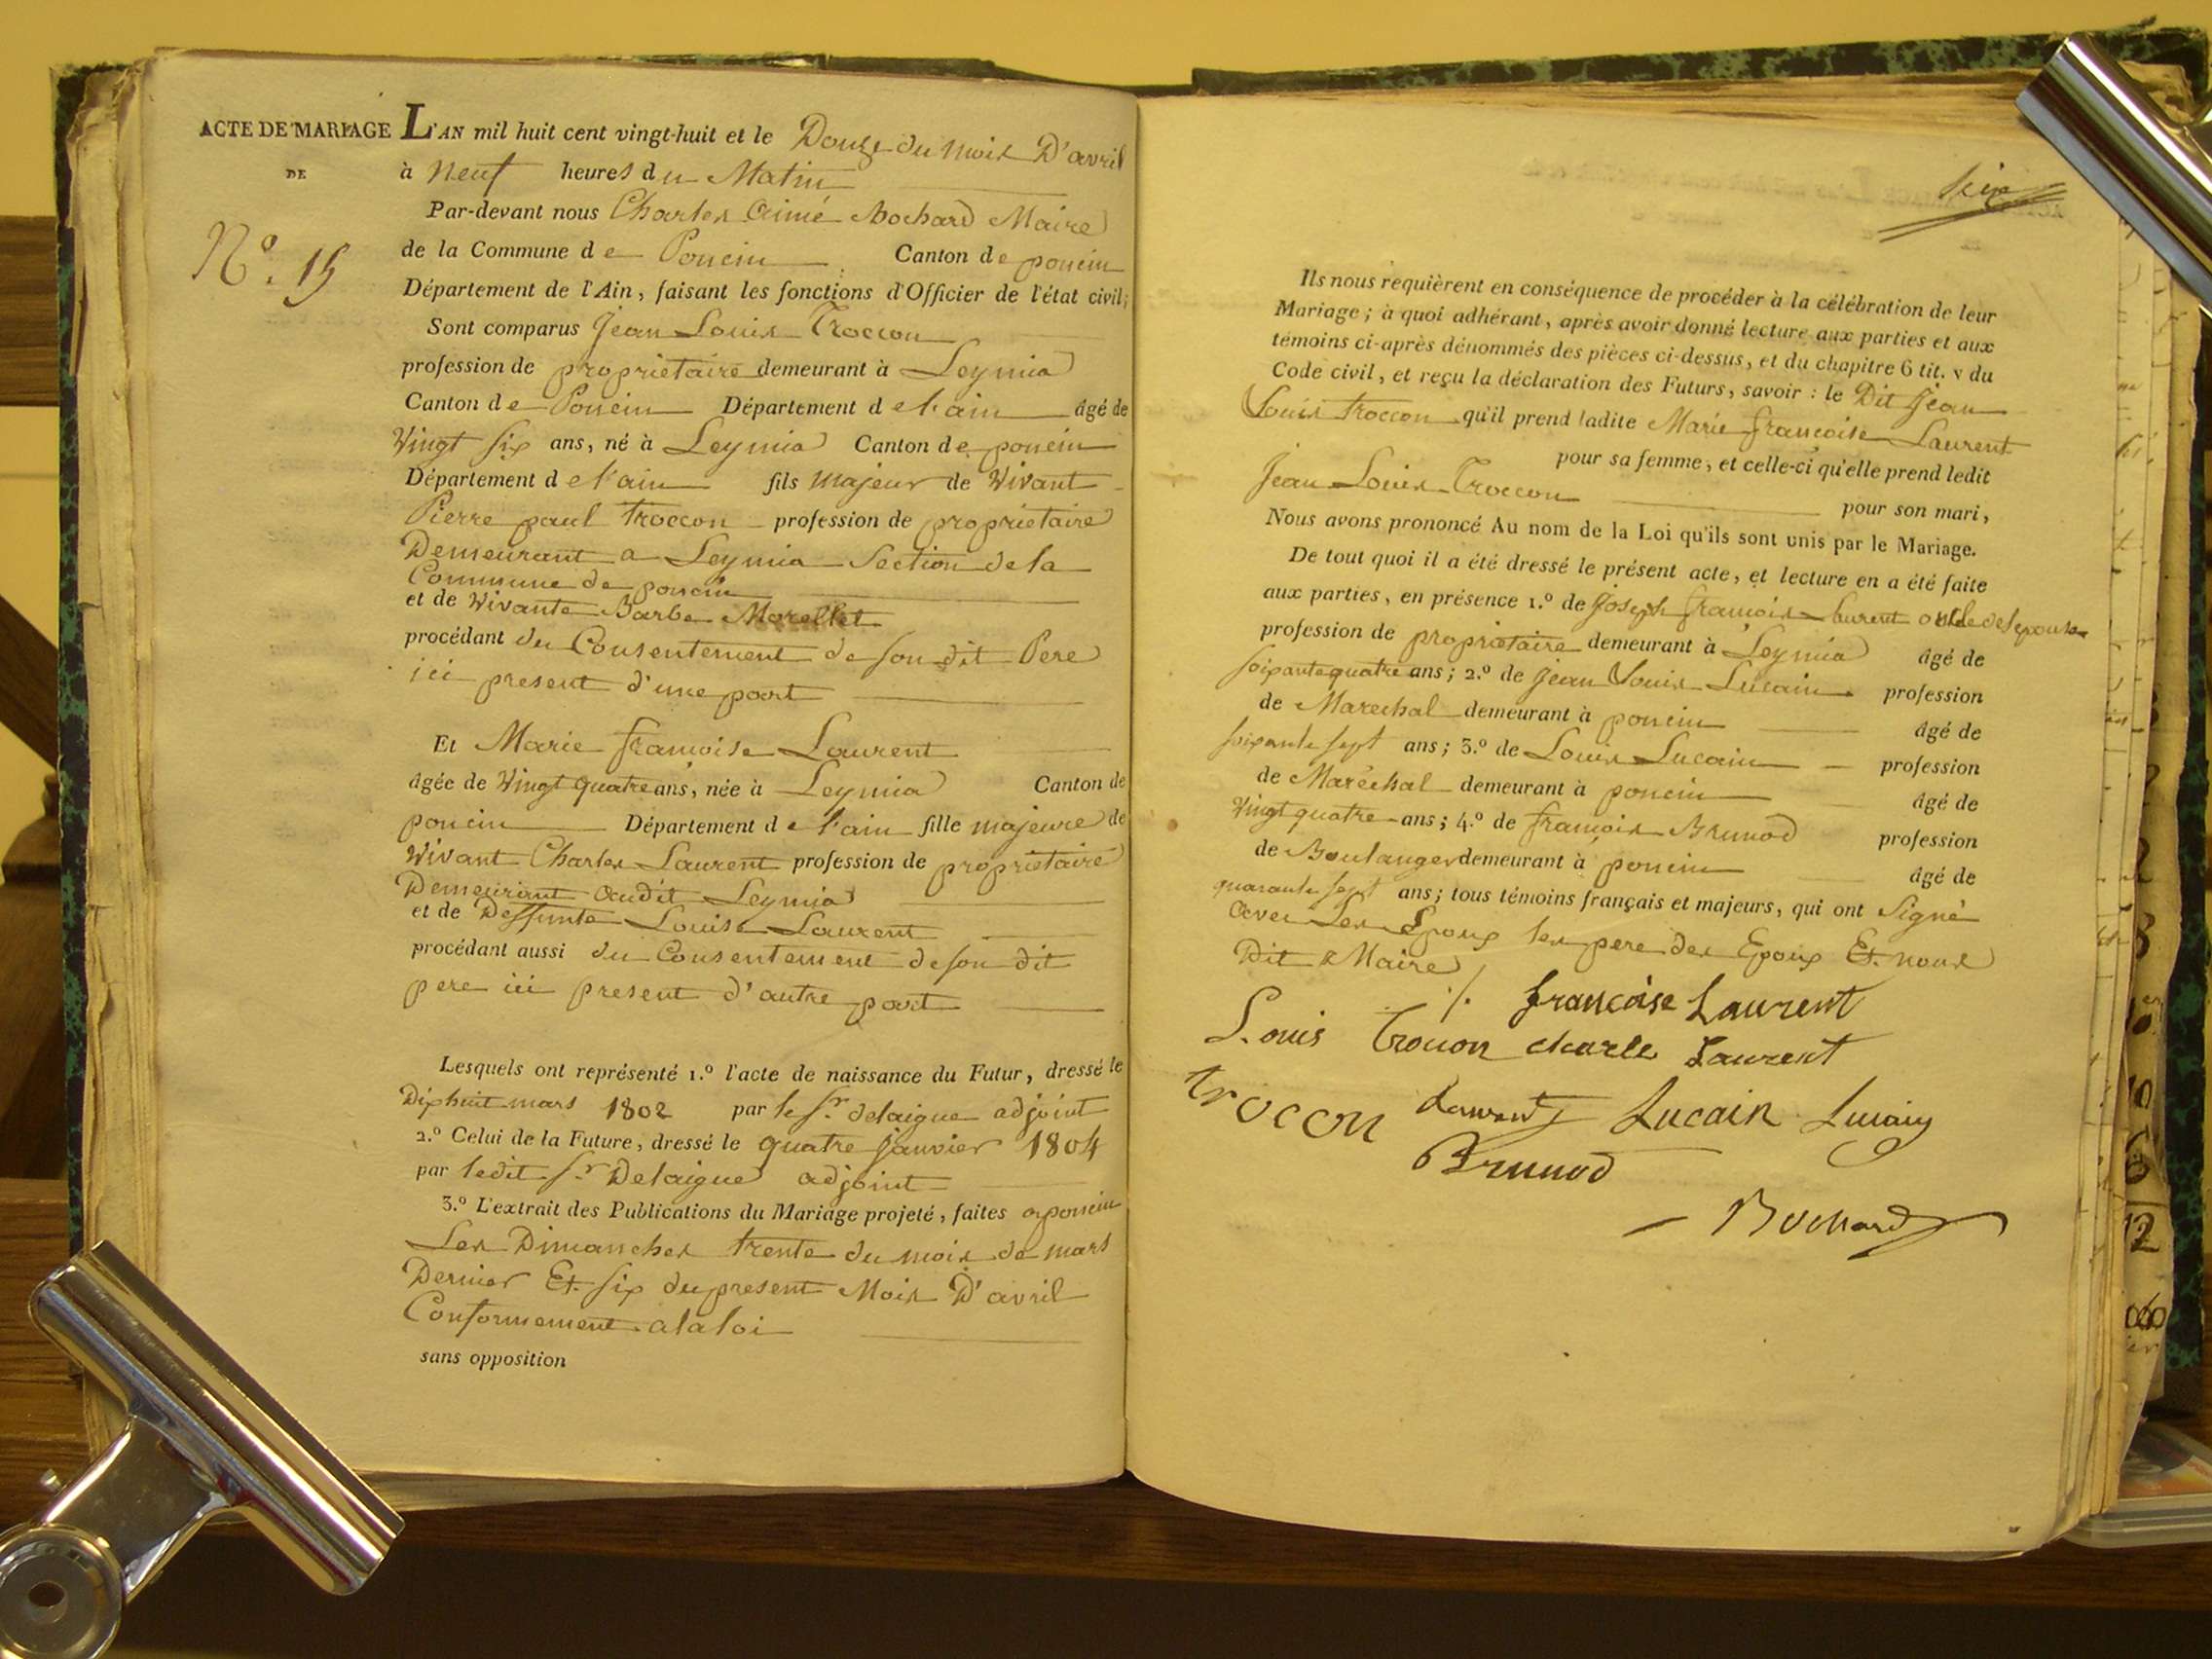 ACTE DE MARIAGE
DE
N.º 15
L'AN mil huit cent vingt-huit et le Douze du mois D'avril
à Neuf heures du Matin
Par-devant nous Charles Aimé Bochard Maire
de la Commune de Poncin Canton de poncin
Département de l'Ain, faisant les fonctions d'Officier de l'état civil;
Sont comparus Jean Louis Troccon
profession de propriétaire demeurant à Leymia
Canton de Poncin Département de l'ain âgé de
Vingt six ans, né à Leymia Canton de poncin
Département de l'ain fils majeur de Vivant
Pierre paul troccon profession de proprietaire
Demeurant a Leymia Section de la
Commune de poncin
et de Vivante Barbe Morellet
procédant du Consentement de son dit Pere
ici present d'une part
Et Marie françoise Laurent
âgée de Vingt quatre ans, née à Leymia Canton de
poncin Département de l'ain fille majeure de
Vivant Charles Laurent profession de proprietaire
Demeurant audit Leymia
et de Deffunte Louise Laurent
procédant aussi du Consentement de son dit
pere ici present d'autre part
Lesquels ont représenté 1.º l'acte de naissance du Futur, dressé le
Dix huit mars 1802 par le Sr. delaigue adjoint
2.º Celui de la Future, dressé le quatre janvier 1804
par ledit Sr. Delaigue adjoint
3.º L'extrait des Publications du Mariage projeté, faites a poncin
Les Dimanches trente du mois de mars
Dernier Et six du present Mois D'avril
Conformement a la loi
sans opposition
Ils nous requièrent en conséquence de procéder à la célébration de leur
Mariage; à quoi adhérant, après avoir donné lecture aux parties et aux
témoins ci-après dénommés des pièces ci-dessus, et du chapitre 6 tit. v du
Code civil, et reçu la déclaration des Futurs, savoir : le Dit Jean
Louis troccon qu'il prend ladite Marie françoise Laurent
pour sa femme, et celle-ci qu'elle prend ledit
Jean Louis Troccon pour son mari,
Nous avons prononcé Au nom de la Loi qu'ils sont unis par le Mariage.
De tout quoi il a été dressé le présent acte, et lecture en a été faite
aux parties, en présence 1.º de Joseph françois Laurent oncle de l'epouse
profession de propriétaire demeurant à Leymia âgé de
soixante quatre ans; 2.º de Jean Louis Lucain profession
de Marechal demeurant à poncin âgé de
soixante sept ans; 3.º de Louis Lucain profession
de Maréchal demeurant à poncin âgé de
Vingt quatre ans; 4.º de françois Brunod profession
de Boulanger demeurant à poncin âgé de
quarante sept ans; tous témoins français et majeurs, qui ont Signé
avec Les Epoux les pere des Epoux Et nous
Dit Maire
françoise Laurent
Louis Trocon charle Laurent
trocon Laurent Lucain Lucain
Brunod
Bochard